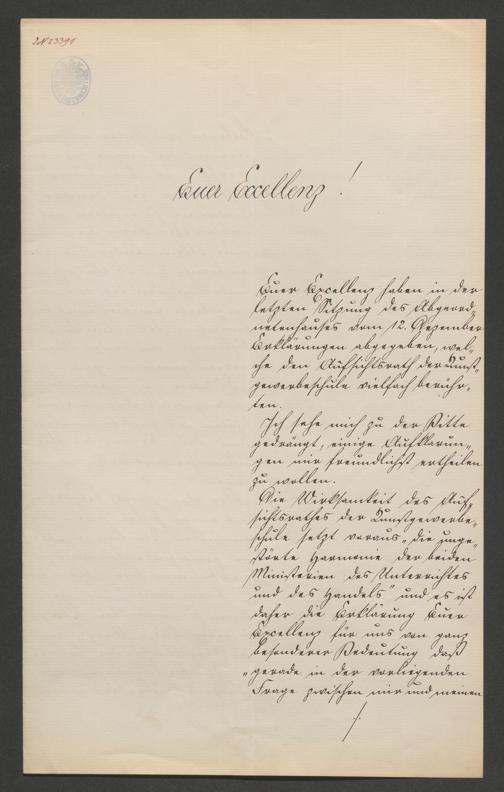 IN 23390
Euer Excellenz!
Euer Excellenz haben in der
letzten Sitzung des Abgeord„
netenhauses vom 12. Dezember
Erklärungen abgegeben, wel„
che den Aufsichtsrath der Kunst„
gewerbeschule vielfach berühr„
ten.
Ich sehe mich zu der Bitte
gedrängt, einige Aufklärun„
gen mir freundlichst ertheilen
zu wollen.
Die Wirksamkeit des Auf„
sichtsrathes der Kunstgewerbe„
schule setzt voraus „die unge„
störte Harmonie der beiden
Ministerien des Unterrichtes
und des Handels" und es ist
daher die Erklärung Euer
Excellenz für uns von ganz
besonderer Bedeutung daß
„gerade in der vorliegenden
Frage zwischen mir und meinem
./.